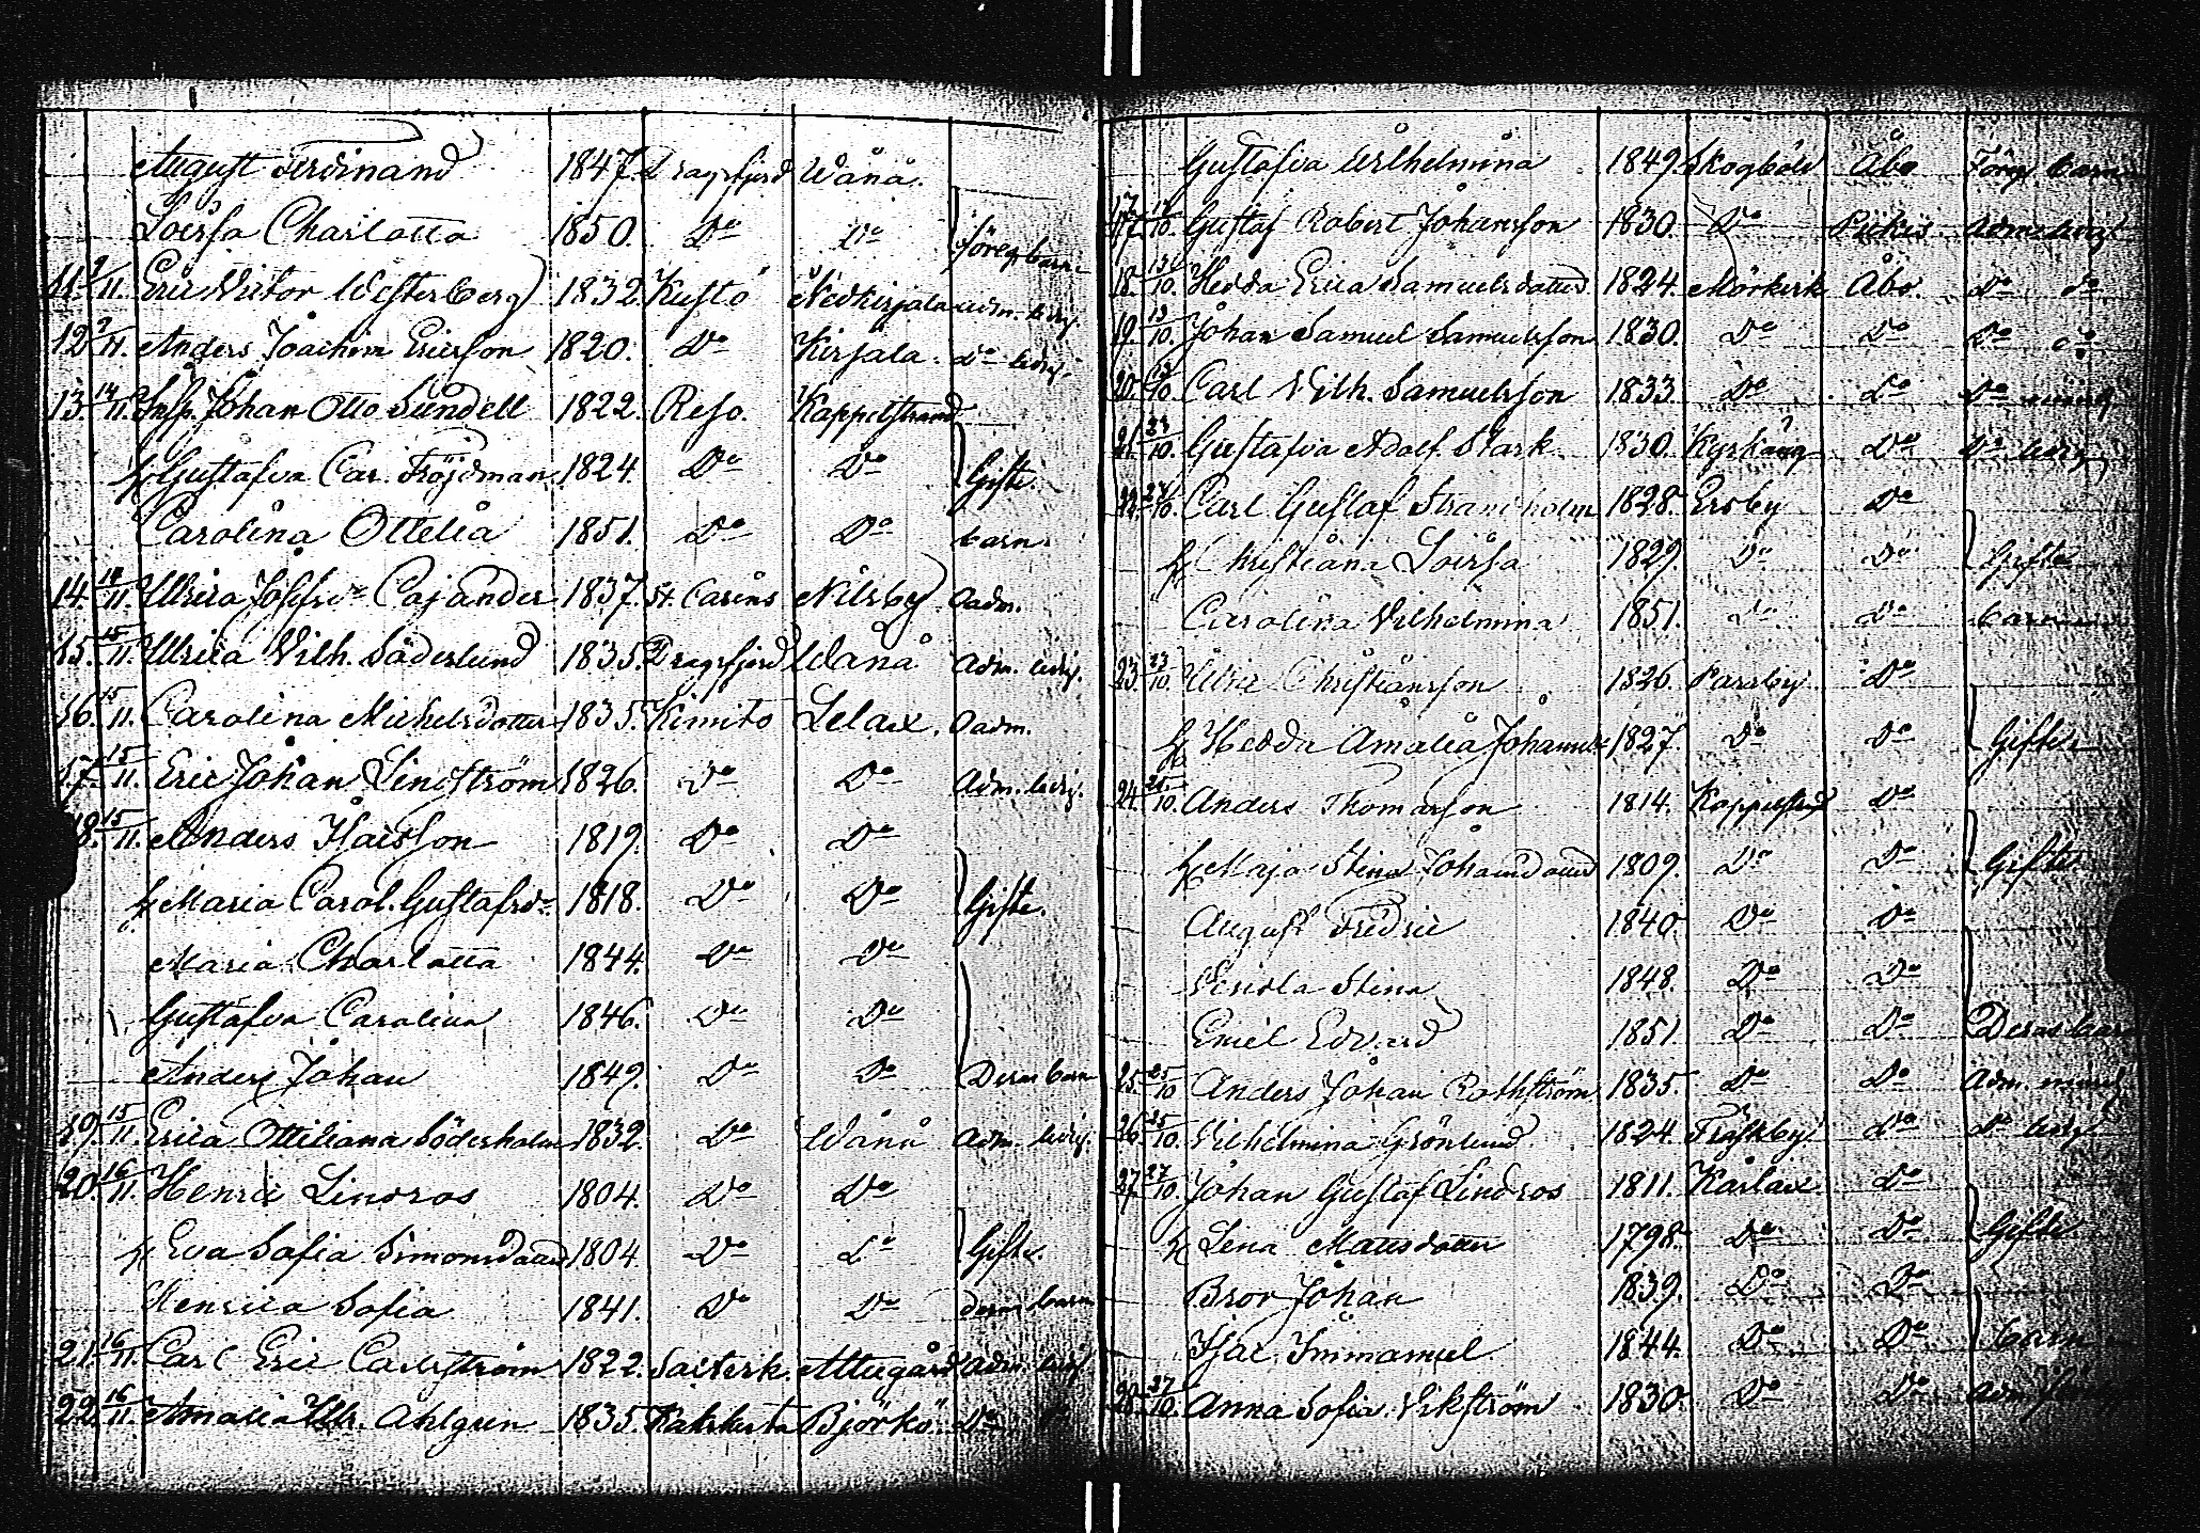 August Ferdinand 1847. Dragsfjerd Wånå.
Lovisa Charlotta 1850. Do Do föreg. barn
11. 9/11. Eric Victor Westerberg 1832. Kustö Nedkirjala adm. ledig.
12. 9/11. Anders Joachim Ericsson 1820. Do Kirjala. Do ledig.
13. 14/11. Insp. Johan Otto Sundell 1822. Reso. Kappelstrand
h. Gustafva Car. Fröjdman 1824. Do Do Gifte.
Carolina Ottelia 1851. Do Do barn.
14. 14/11. Ulrica Josefsdr Cajander 1837. St. Carins Nilsby. Oadm.
15. 15/11. Ulrica Vilh. Söderlund 1835. Dragsfjerd Wånå Adm. ledig.
16. 15/11. Carolina Michelsdotter 1835. Kimito Lelax. Oadm.
17. 15/11. Eric Johan Lindström 1826. Do Do Adm. ledig.
18. 15/11. Anders Isaksson 1819. Do Do
h. Maria Carol. Gustafsdr 1818. Do Do Gifte.
Maria Charlotta 1844. Do Do
Gustafva Carolina 1846. Do Do
Anders Johan 1849. Do Do Deras barn
19. 15/11. Erica Ottiliana Söderholm 1832. Do Wånå Adm. ledig.
20. 16/11. Henric Lindros 1804. Do Do
h. Eva Sofia Simonsdotter 1804. Do Do Gifte.
Henrica Sofia 1841. Do Do deras barn
21. 16/11. Carl Eric Carlström 1822. Adm. ledig.
22. 16/11. Amalia Vilh. Ahlgren 1835. Björkö. Do
Gustafva Wilhelmina 1849. Skogböle Åbo Föreg. barn
17. 10. Gustaf Robert Johansson 1830. Do Pickis Adm. ledig
18. 13/10. Hedda Erica Samuelsdotter 1824. Mörkerk Åbo. Do do
19. 13/10. Johan Samuel Samuelsson 1830. Do Do Do do
20. 13/10. Carl Vilh. Samuelsson 1833. Do Do Do
21. 23/10. Gustafva Adolf. Stark 1830. Do Do ledig
22. 10. Carl Gustaf Strandholm 1828. Ersby Do
h. Christiana Lovisa 1829. Do Do Gifte
Carolina Vilhelmina 1851. Do Do barn
23. 23/10. Christiansson 1826. Parsby Do
h. Hedda Amalia Johansdr 1827. Do Do Gifte
24. 25/10. Anders Thomasson 1814. Kappelstrand Do
h. Maja Stina Johansdotter 1809. Do Do Gifte
August Fredric 1840. Do Do
Stina 1848. Do Do
Emel Edvard 1851. Do Do Deras barn
25. 25/10 Anders Johan Rothström 1835. Do Do Adm.
26. 25/10. Vilhelmina Grönlund 1824. Fräskby Do Do ledig
27. 27/10. Johan Gustaf Lindros 1811. Kårlax Do
h. Lena Mattsdotter 1798. Do Do Gifte
Bror Johan 1839. Do Do
Isac Immanuel 1844. Do Do barn
28. 27/10. Anna Sofia Vikström 1830. Do Do Adm.